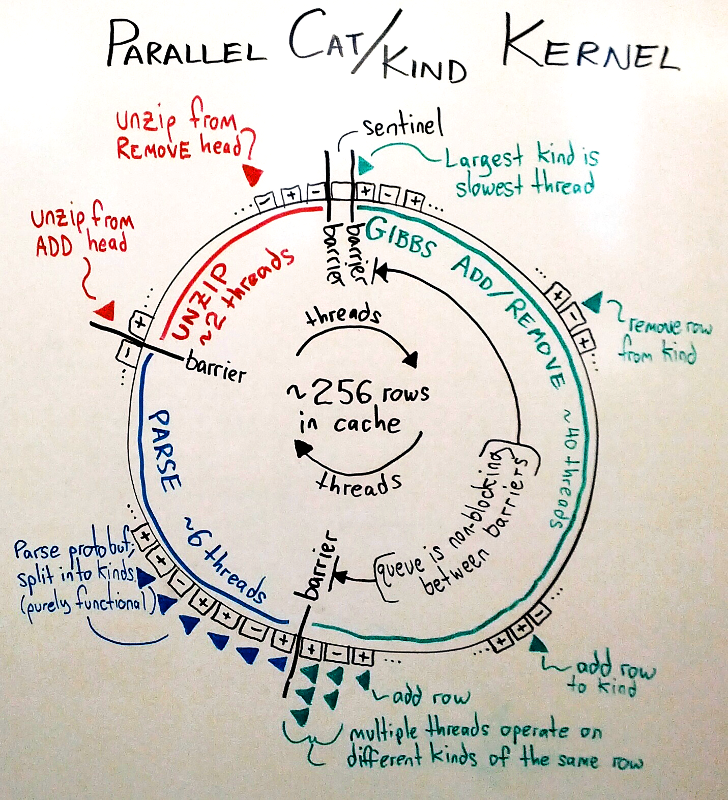 PARALLEL CAT/KIND KERNEL
unzip from
REMOVE head?
sentinel
Largest kind is
slowest thread
unzip from
ADD head
... - + -
+ - + ...
barrier
barrier
GIBBS ADD/REMOVE ~40 threads
UNZIP
~2 threads
... + - + ...
remove row
from kind
+
-
barrier
threads
~256 rows
in cache
threads
PARSE ~6 threads
queue is non-blocking
between barriers
barrier
Parse protobuf;
split into kinds
(purely functional)
... + + - + + - +
+ - + ...
... + + - ...
add row
to kind
add row
multiple threads operate on
different kinds of the same row